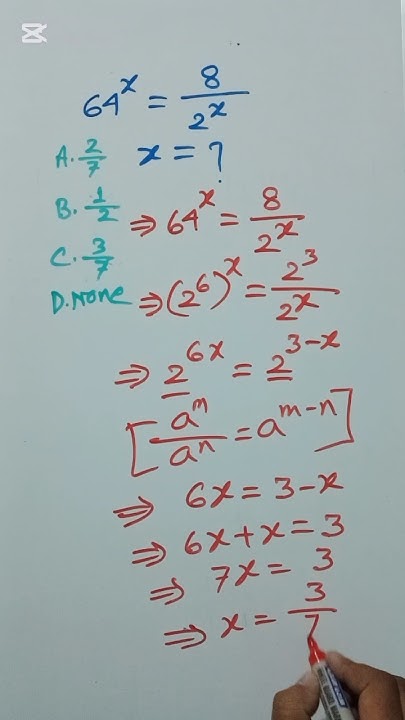 64^x = 8/2^x
A. 2/7
x = ?
B. 1/2
C. 3/7
D. None
⇒ 64^x = 8/2^x
⇒ (2^6)^x = 2^3/2^x
⇒ 2^6x = 2^3-x
[a^m/a^n = a^m-n]
⇒ 6x = 3-x
⇒ 6x+x = 3
⇒ 7x = 3
⇒ x = 3/7